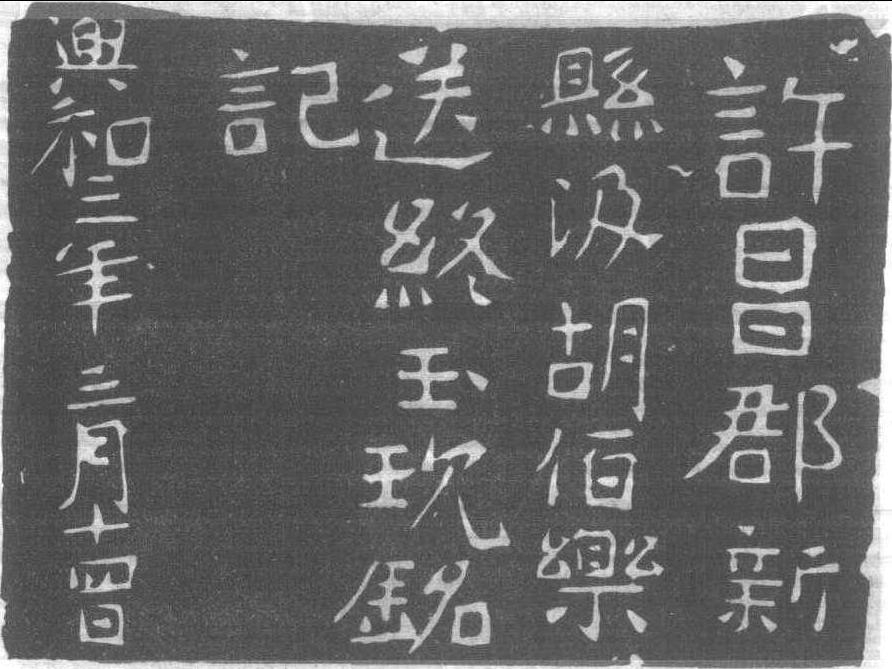 許昌郡新
縣汲胡伯樂
送終玉銘
記
興和三年三月十四日